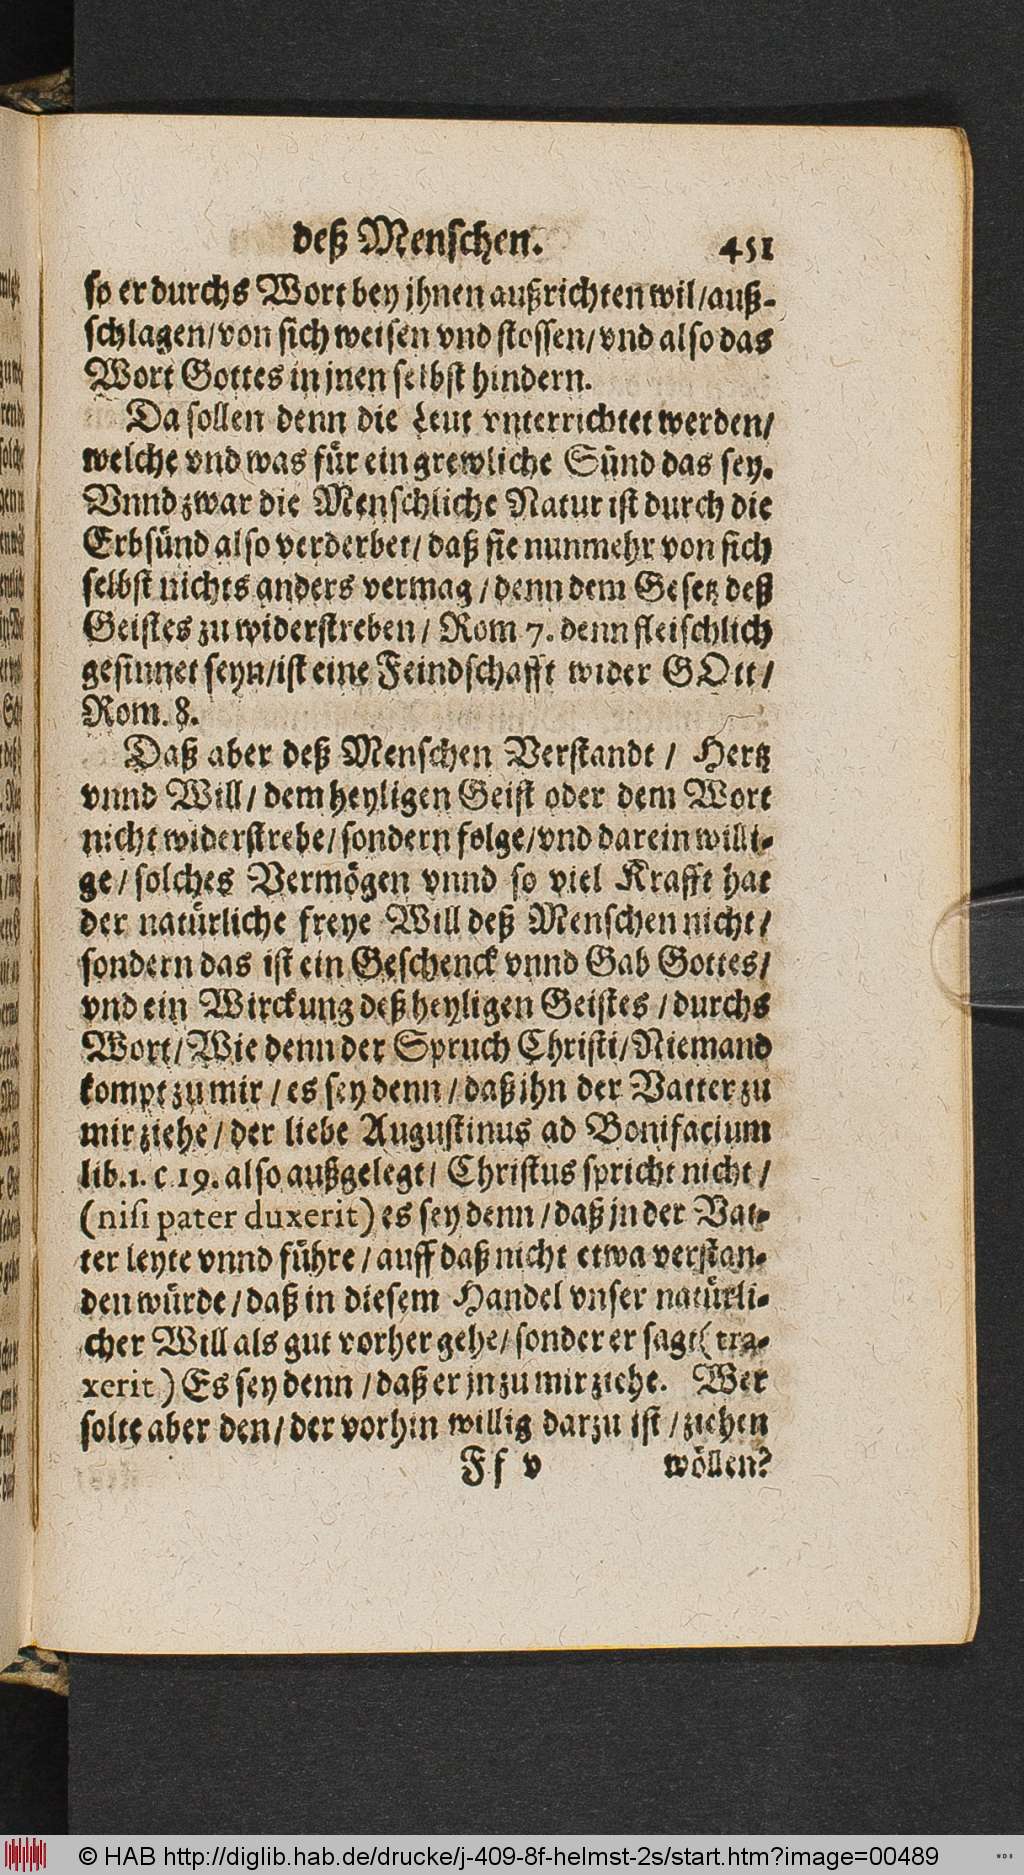 deß Menschen. 451
so er durchs Wort bey jhnen außrichten wil/auß-
schlagen/von sich weisen vnd stossen/vnd also das
Wort Gottes in jnen selbst hindern.
Da sollen denn die Leut vnterrichtet werden/
welche vnd was für ein grewliche Sünd das sey.
Vnnd zwar die Menschliche Natur ist durch die
Erbsünd also verderbet/daß sie nunmehr von sich
selbst nichts anders vermag/denn dem Gesetz deß
Geistes zu widerstreben/Rom 7. denn fleischlich
gesinnet seyn/ist eine Feindschafft wider GOtt/
Rom. 8.
Daß aber deß Menschen Verstandt/Hertz
vnnd Will/dem heyligen Geist oder dem Wort
nicht widerstrebe/sondern folge/vnd darein willi-
ge/solches Vermögen vnnd so viel Krafft hat
der natürliche freye Will deß Menschen nicht/
sondern das ist ein Geschenck vnnd Gab Gottes/
vnd ein Wirckung deß heyligen Geistes/durchs
Wort/Wie denn der Spruch Christi/Niemand
kompt zu mir/es sey denn/daß ihn der Vatter zu
mir ziehe/der liebe Augustinus ad Bonifacium
lib. 1. c 19. also außgelegt/Christus spricht nicht/
(nisi pater duxerit) es sey denn/daß jn der Vat-
ter leyte vnnd führe/auff daß nicht etwa verstan-
den würde/daß in diesem Handel vnser natürli-
cher Will als gut vorher gehe/sonder er sagt (tra-
xerit) Es sey denn/daß er jn zu mir ziehe. Wer
solte aber den/der vorhin willig darzu ist/ziehen
Ff v wöllen?
© HAB http://diglib.hab.de/drucke/j-409-8f-helmst-2s/start.htm?image=00489